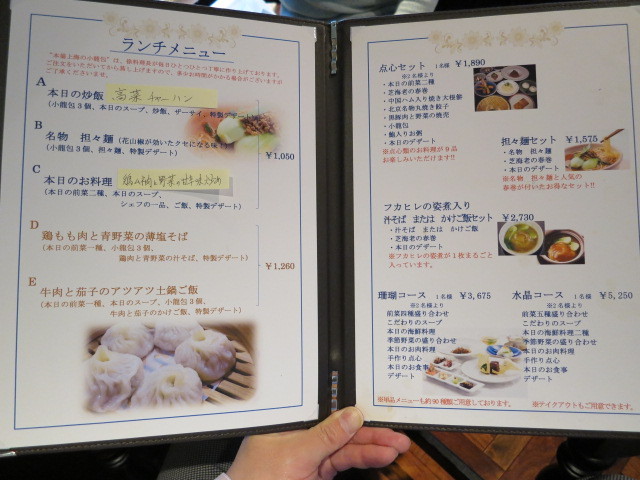 ランチメニュー
"本格上海の小籠包"は、
ご注文をいただいてから蒸し上げますので、多少お時間がかかる場合がございますが
ご了承くださいませ。
A
本日の炒飯 高菜チャーハン
(小籠包3個、本日のスープ、炒飯、ザーサイ、特製デザート)
B
名物 担々麺(花山椒が効いたクセになる味
(小籠包3個、担々麺、特製デザート)
¥1,050
C
本日のお料理
(本日の前菜二種、本日のスープ、
シェフの一品、ご飯、特製デザート)
D
鶏もも肉と青野菜の薄塩そば
(本日の前菜一種、小籠包3個、
鶏肉と青野菜の汁そば、特製デザート)
¥1,260
E
牛肉と茄子のアツアツ土鍋ご飯
(本日の前菜一種、本日のスープ、小籠包3個、
牛肉と茄子のかけご飯、特製デザート)
点心セット 1名様 ¥1,890
※2名様より
・本日の前菜二種
・芝海老の春巻
・中国ハム入り焼き大根餅
・北京名物丸焼き餃子
・黒豚肉と野菜の焼売
・小籠包
・鮑入りお粥
・本日のデザート
※点心類のお料理が9品
お楽しみいただけます!!
担々麺セット ¥1,575
・名物 担々麺
・芝海老の春巻
・本日のデザート
※名物 担々麺と人気の
春巻が付いたお得なセット!!
フカヒレの姿煮入り
汁そば または かけご飯セット ¥2,730
・汁そば または かけご飯
・芝海老の春巻
・本日のデザート
※フカヒレの姿煮が1枚まるごと
入っています。
珊瑚コース 1名様 ¥3,675
※2名様より
前菜四種盛り合わせ
こだわりのスープ
本日の海鮮料理
季節野菜の盛り合わせ
本日のお肉料理
手作り点心
本日のお食事
デザート
水晶コース 1名様 ¥5,250
※2名様より
前菜五種盛り合わせ
こだわりのスープ
本日の海鮮料理二種
季節野菜の盛り合わせ
本日のお肉料理
手作り点心
本日のお食事
デザート
※単品メニューも約90種類ご用意しております。
※テイクアウトもご用意できます。